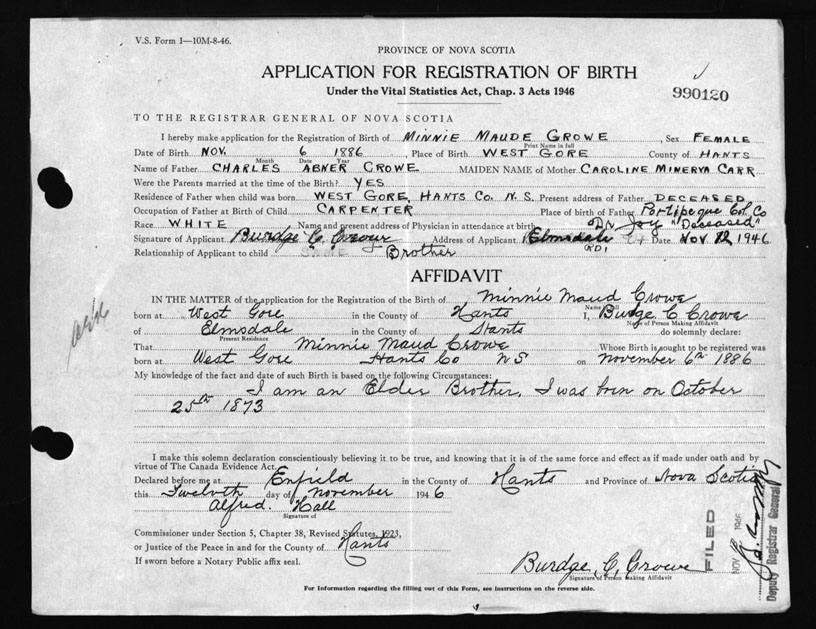 V.S. Form 1—10M-8-46.
PROVINCE OF NOVA SCOTIA
APPLICATION FOR REGISTRATION OF BIRTH
Under the Vital Statistics Act, Chap. 3 Acts 1946
990120
TO THE REGISTRAR GENERAL OF NOVA SCOTIA
I hereby make application for the Registration of Birth of MINNIE MAUDE CROWE, Sex FEMALE
Print Name in full
Date of Birth NOV. 6 1886, Place of Birth WEST GORE County of HANTS
Month Date Year
Name of Father CHARLES ABNER CROWE MAIDEN NAME of Mother CAROLINE MINERVA CARR
Were the Parents married at the time of the Birth? YES
Residence of Father when child was born WEST GORE, HANTS CO. N.S. Present address of Father DECEASED
Occupation of Father at Birth of Child CARPENTER Place of birth of Father Portipeque Col. Co
Race WHITE Name and present address of Physician in attendance at birth Dr Joy "Deceased"
Signature of Applicant Burdge C. Crowe Address of Applicant Elmsdale Date NOV 12 1946
RD1
Relationship of Applicant to child Brother
AFFIDAVIT
IN THE MATTER of the application for the Registration of the Birth of Minnie Maud Crowe
Name
born at West Gore in the County of Hants I, Burdge C Crowe
Name of Person Making Affidavit
of Elmsdale in the County of Hants do solemnly declare:
Present Residence
That Minnie Maud Crowe Whose Birth is sought to be registered was
born at West Gore Hants Co NS on November 6th 1886
My knowledge of the fact and date of such Birth is based on the following Circumstances:
I am an Elder Brother, I was born on October
25th 1873
I make this solemn declaration conscientiously believing it to be true, and knowing that it is of the same force and effect as if made under oath and by
virtue of The Canada Evidence Act.
Declared before me at Enfield in the County of Hants and Province of Nova Scotia
this Twelvth day of November 1946
Alfred. Hall
Signature of
Commissioner under Section 5, Chapter 38, Revised Statutes, 1923,
or Justice of the Peace in and for the County of Hants
If sworn before a Notary Public affix seal.
Burdge, C, Crowe
Signature of Person Making Affidavit
FILED
NOV 1946
Deputy Registrar General
For Information regarding the filling out of this Form, see instructions on the reverse side.